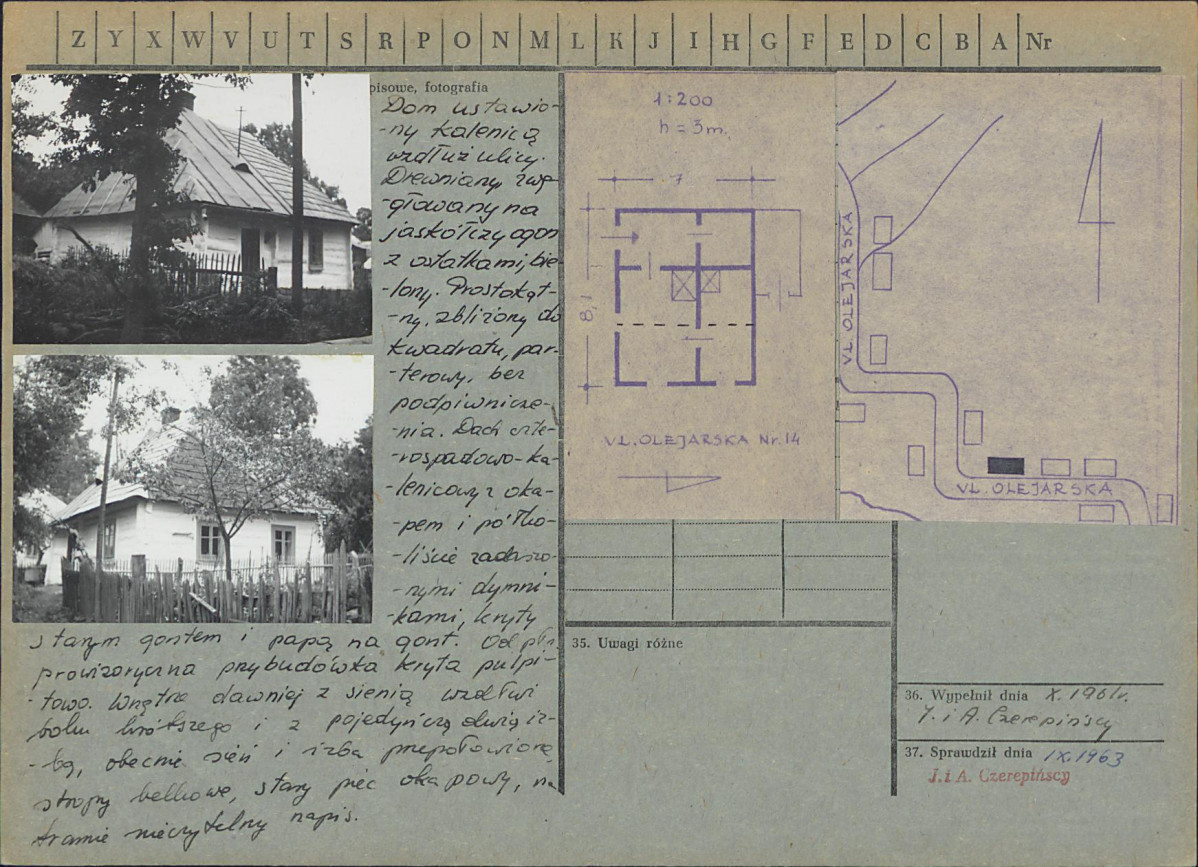 Z Y X W V U T S R P O N M L K J I H G F E D C B A Nr
pisowe, fotografia
Dom ustawio-
-ny kalenicą
wzdłuż ulicy.
Drewniany, zwę-
-głowany na
jaskółczy ogon
z ostatkami, bie-
-lony. Prostokąt-
-ny, zbliżony do
kwadratu, par-
-terowy, bez
podpiwnicze-
-nia. Dach czte-
-rospadowo-ka-
-lenicowy z oka-
-pem i półko-
-liście zadaszo-
-nymi dymni-
-kami, kryty
starym gontem i papą na gont. Od płn.
prowizoryczna przybudówka kryta pulpi-
-towo. Wnętrze dawniej z sienią wzdłuż
boku krótszego i z pojedyńczą dużą iz-
-bą, obecnie sień i izba przepołowione,
stropy belkowe, stary piec okapowy, na
tramie nieczytelny napis.
1:200
h = 3m.
7
8,1
UL. OLEJARSKA Nr. 14
UL. OLEJARSKA
UL. OLEJARSKA
35. Uwagi różne
36. Wypełnił dnia X. 1961r.
J. i A. Czerepińscy
37. Sprawdził dnia IX. 1963
J. i A. Czerepińscy